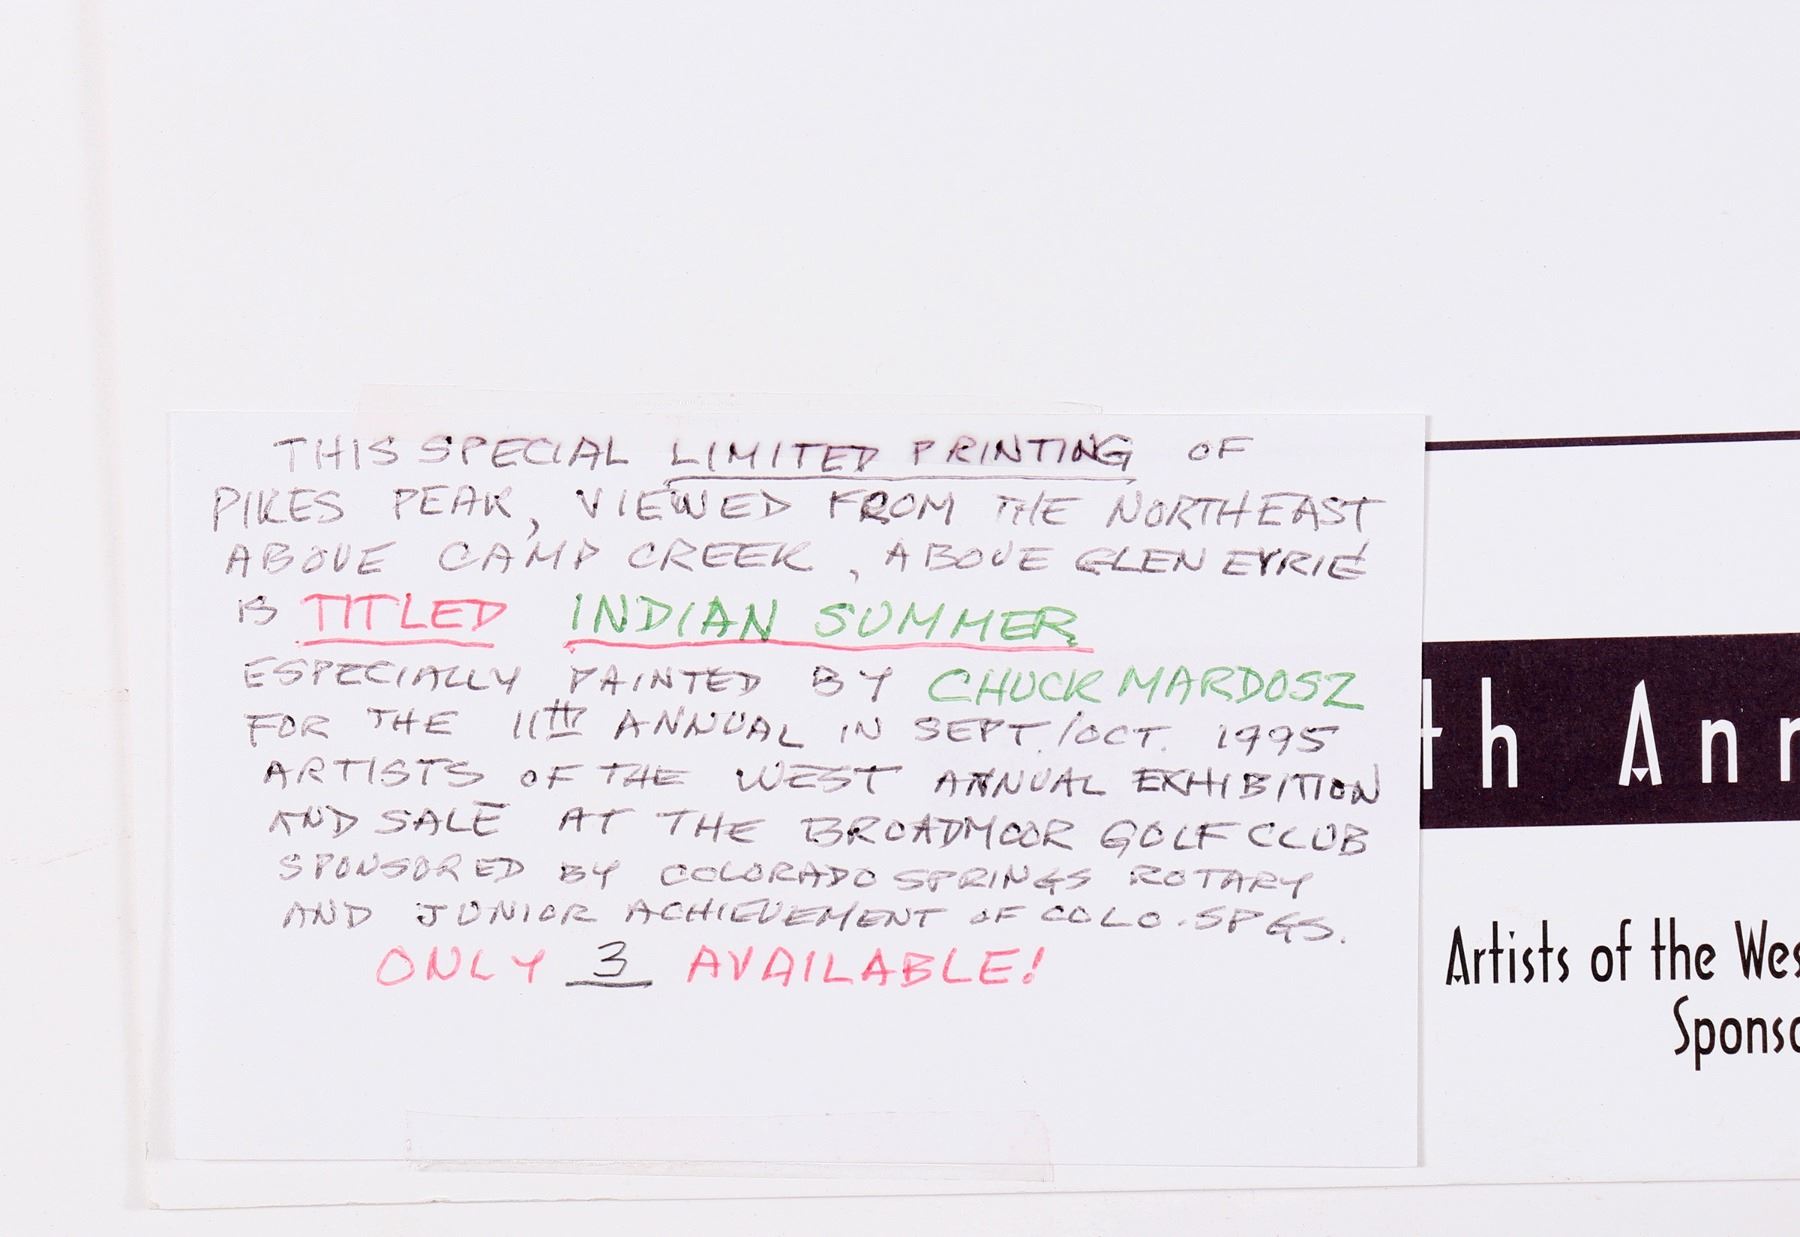 THIS SPECIAL LIMITED PRINTING OF
PIKES PEAK, VIEWED FROM THE NORTHEAST
ABOVE CAMP CREEK, ABOVE GLEN EYRIE
IS TITLED INDIAN SUMMER
ESPECIALLY PAINTED BY CHUCK MARDOSZ
FOR THE 11TH ANNUAL IN SEPT./OCT. 1995
ARTISTS OF THE WEST ANNUAL EXHIBITION
AND SALE AT THE BROADMOOR GOLF CLUB
SPONSORED BY COLORADO SPRINGS ROTARY
AND JUNIOR ACHIEVEMENT OF COLO. SPGS.
ONLY 3 AVAILABLE!
th Ann
Artists of the Wes
Sponso